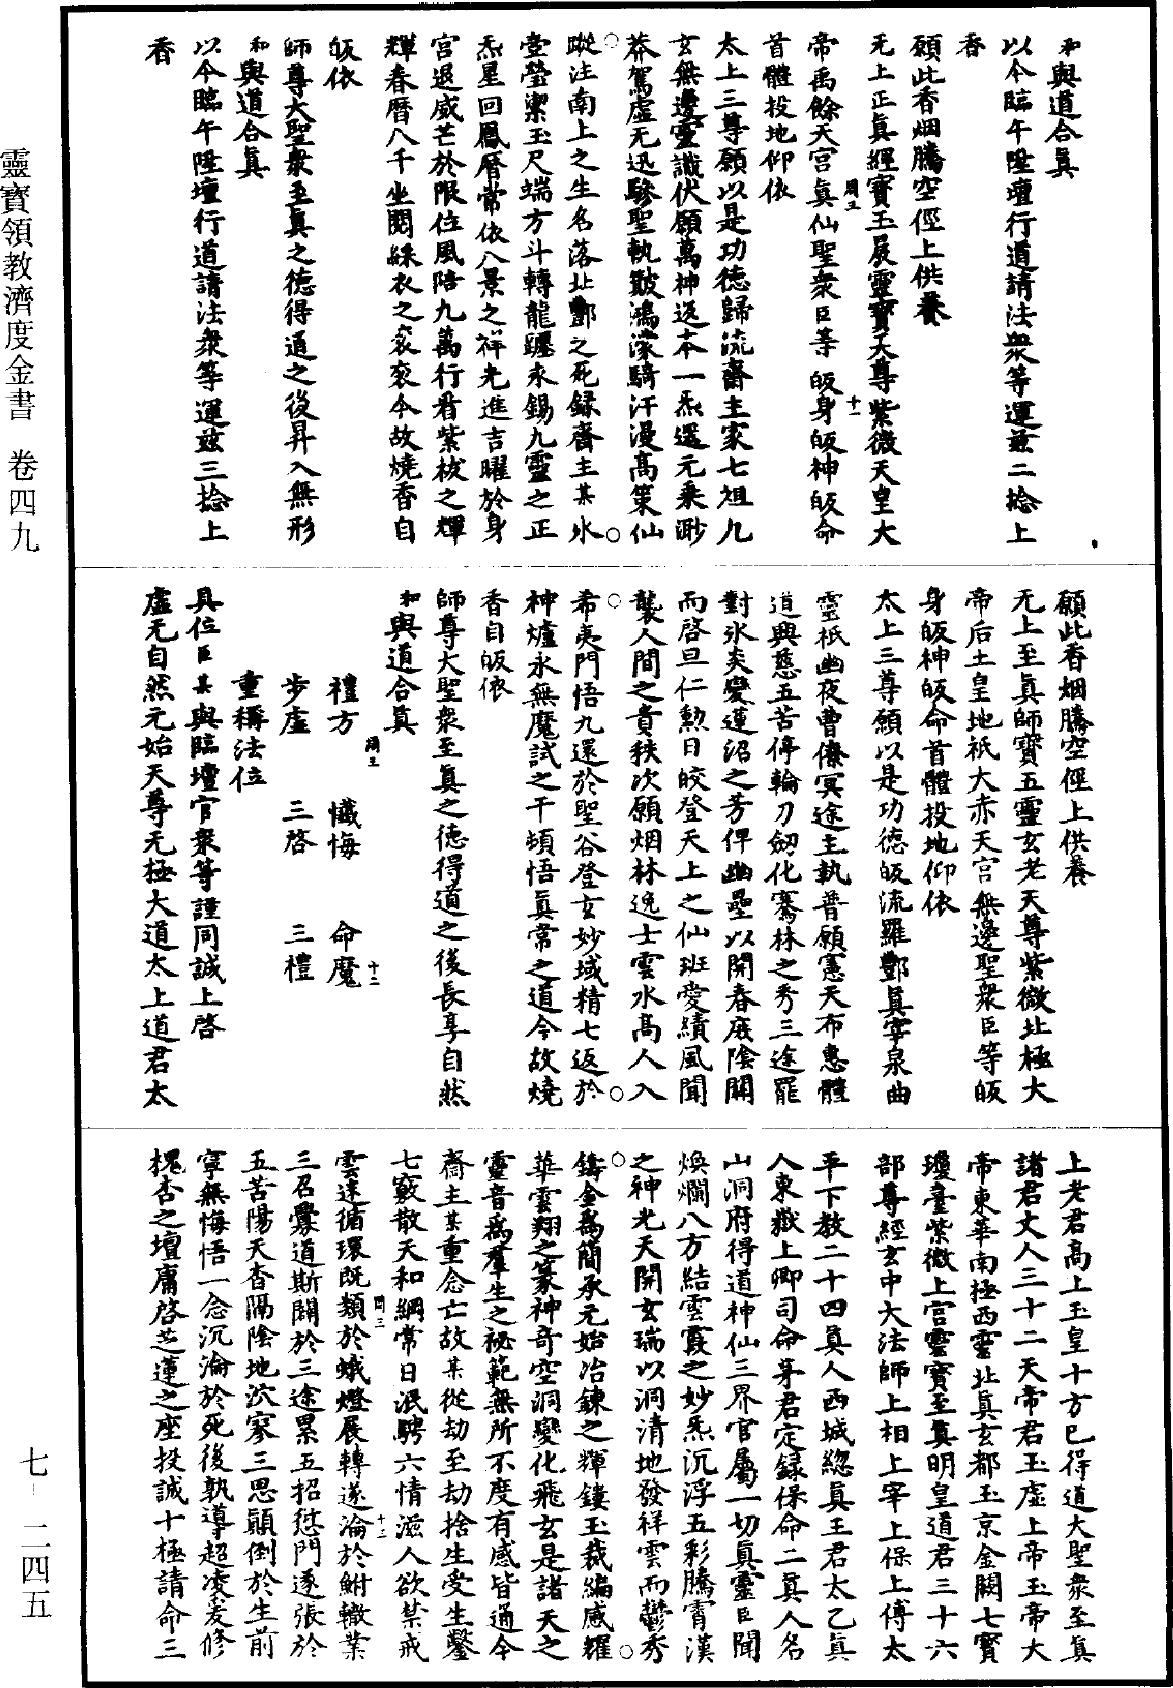 和與道合眞
以今臨午陞壇行道請法衆等運茲二捻上
香
願此香烟騰空徑上供養
无上正眞經寶玉晨靈寶天尊紫微天皇大
帝禹餘天宮眞仙聖衆臣等皈身皈神皈命
首體投地仰依
太上三尊願以是功德歸流齋主家七祖九
玄無邊靈識伏願萬神返本一炁還元乘渺
莽駕虛无迅驂聖軌皷鴻濛騎汗漫高策仙
蹤注南上之生名落北酆之死錄齋主某氷
壺瑩潔玉尺端方斗轉龍躔永錫九靈之正
炁星回鳳曆常依八景之祥光進吉曜於身
宮退威芒於限位風陪九萬行看紫綬之輝
輝春曆八千坐閱綵衣之衮衮今故燒香自
皈依
師尊大聖衆至眞之德得道之後昇入無形
和與道合眞
以今臨午陞壇行道請法衆等運茲三捻上
香
願此香烟騰空徑上供養
无上至眞師寶五靈玄老天尊紫微北極大
帝后土皇地祇大赤天宮無邊聖衆臣等皈
身皈神皈命首體投地仰依
太上三尊願以是功德皈流羅酆眞宰泉曲
靈祇幽夜曹僚冥途主執普願憲天布惠體
道興慈五苦停輪刀劒化騫林之秀三途罷
對氷炎變蓮沼之芳俾幽壘以開春庶陰關
而啓旦仁勲日皎登天上之仙班愛績風聞
襲人間之貴秩次願烟林逸士雲水高人入
希夷門悟九還於聖谷登玄妙域精七返於
神爐永無魔試之干頓悟眞常之道今故燒
香自皈依
師尊大聖衆至眞之德得道之後長享自然
和與道合眞
禮方 懺悔 命魔
步虛 三啓 三禮
重稱法位
具位臣某與臨壇官衆等謹同誠上啓
虛无自然元始天尊无極大道太上道君太
上老君高上玉皇十方已得道大聖衆至眞
諸君丈人三十二天帝君玉虛上帝玉帝大
帝東華南極西靈北眞玄都玉京金闕七寶
瓊臺紫微上宮靈寶至眞明皇道君三十六
部尊經玄中大法師上相上宰上保上傅太
平下教二十四眞人西城總眞王君太乙眞
人東嶽上卿司命茅君定錄保命二眞人名
山洞府得道神仙三界官屬一切眞靈臣聞
煥爛八方結雲霞之妙炁沉浮五彩騰霄漢
之神光天開玄瑞以洞清地發祥雲而鬱秀
鑄金爲簡承元始冶鍊之輝鏤玉裁編感耀
華雲翔之篆神奇空洞變化飛玄是諸天之
靈音爲羣生之祕範無所不度有感皆通今
齋主某重念亡故某從劫至劫捨生受生鑿
七竅散天和綱常日泯騁六情滋人欲禁戒
雲逺循環既類於蛾燈展轉遂淪於鮒轍業
三召釁道斯闢於三途累五招愆門遂張於
五苦陽天杳隔陰地沉寥三思顛倒於生前
寧無悔悟一念沉淪於死後孰導超凌爰修
槐杏之壇庸啓芝蓮之座投誠十極請命三
靈寶領教濟度金書 卷四九
七-二四五